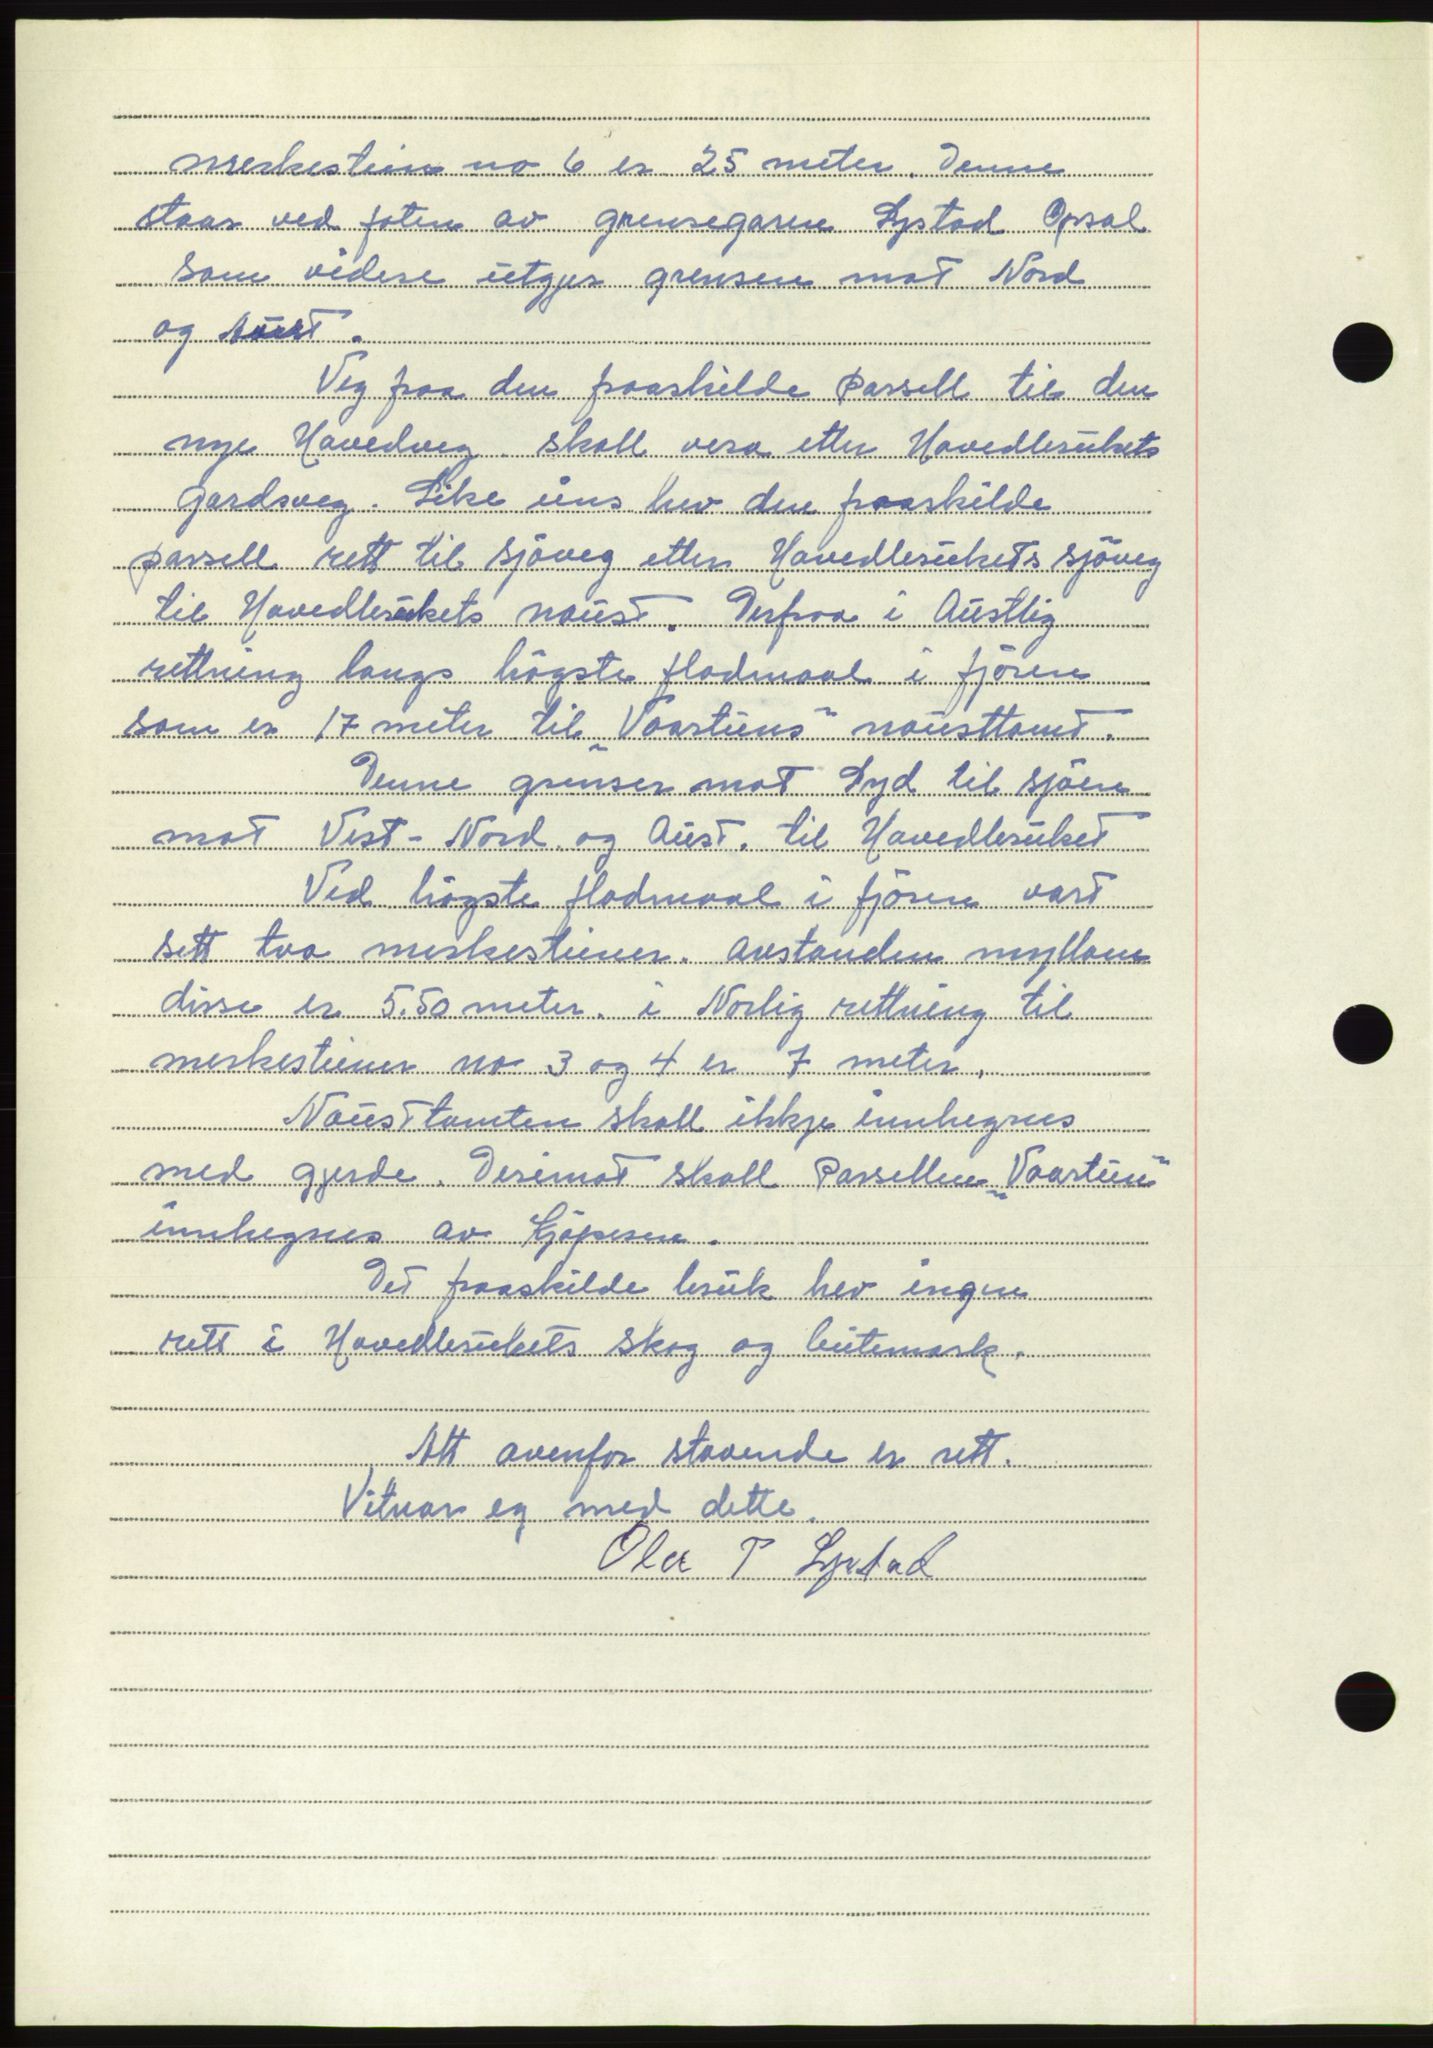 merkestein no 6 er 25 meter. Denne
staar ved foten av grensegaren Lystad Opsal
som videre utgjer grensen mot Nord
og Aust.
Veg fraa den fraaskilde Parsell til den
nye Hovedveg. skall vera etter Hovedbrukets
gardsveg. Like eins hev den fraaskilde
parsell rett til sjöveg etter Hovedbrukets sjöveg
til Hovedbrukets naust. Derfraa i Austlig
rettning langs högste flodmaal i fjören
som er 17 meter til "Vaartuns" nausttomt.
Denne grenser mot Syd til sjöen
mot Vest - Nord og Aust. til Hovedbruket
Ved högste flodmaal i fjören vart
sett tvo merkesteiner. Avstanden myllom
disse er 5.50 meter. i Norlig rettning til
merkesteiner no 3 og 4 er 7 meter.
Nausttomten skall ikkje innhegnes
med gjerde. Derimot skall Parsellen "Vaartun"
innhegnes av Kjöperen.
Det fraaskilde bruk hev ingen
rett i Hovedbrukets skog og beitemark.
Att ovenfor stavende er rett.
Vitnar eg med dette.
Ola T Lystad